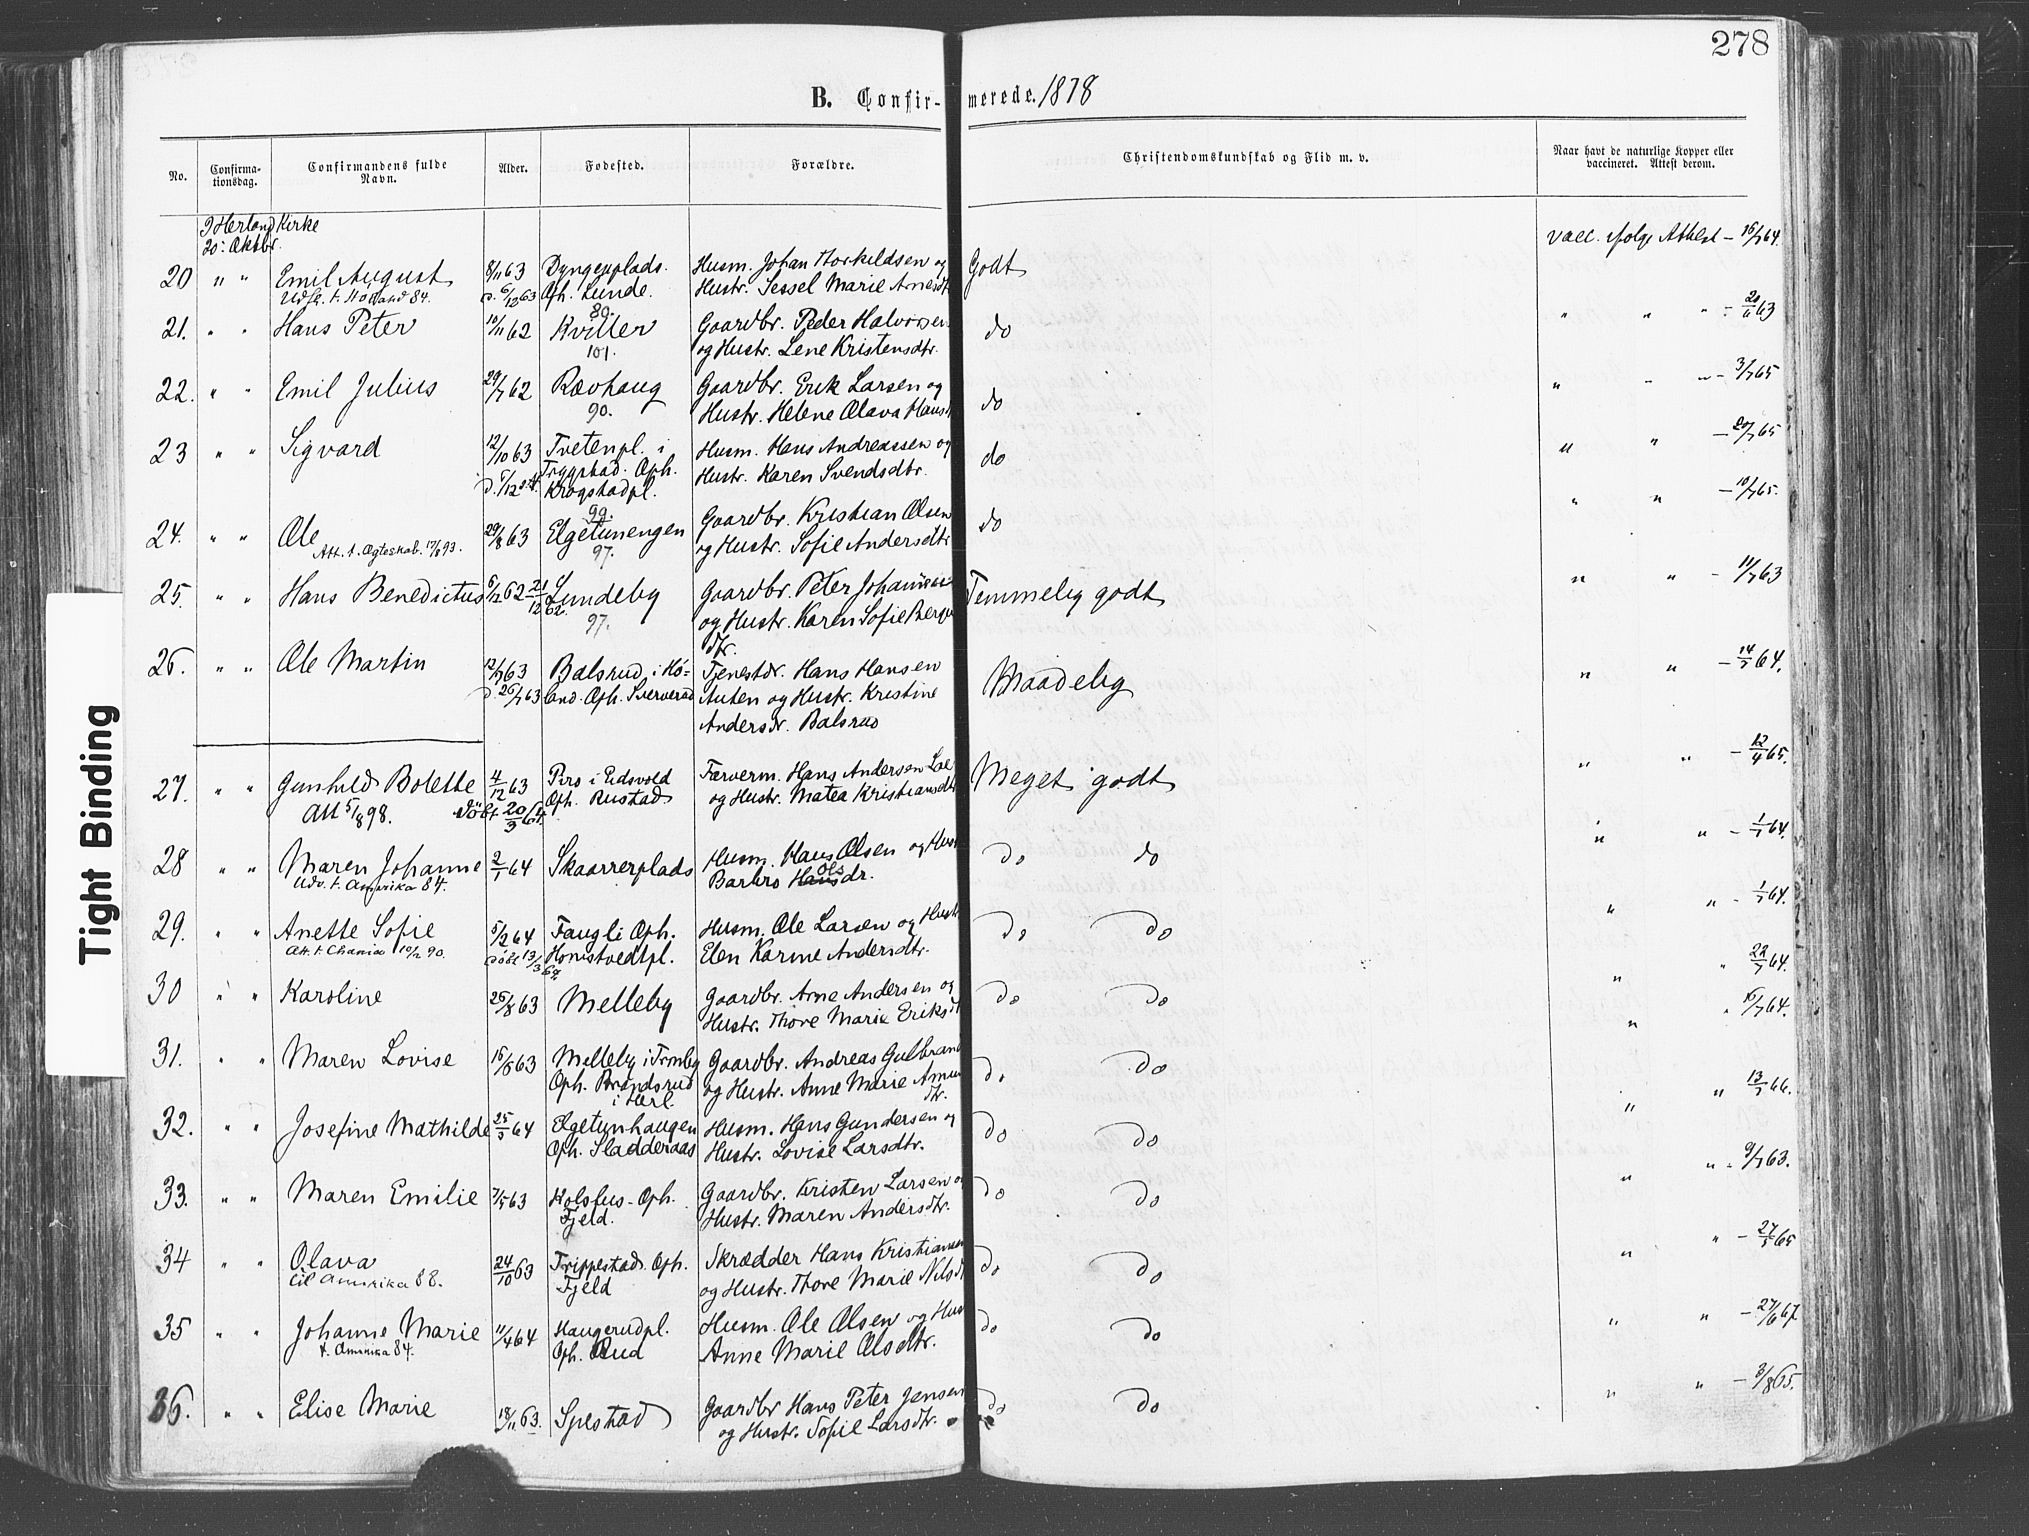 278
B. Confir- merede. 1878
No. Confirma-tionsdag. Confirmandens fulde Navn. Alder. Fødested. Forældre. Christendomskundskab og Flid m. v. Naar havt de naturlige Kopper eller vaccineret. Attest derom.
I Herland Kirke
20: Oktbr. Vacc. ifølge Attest - 16/7 64.
20 " " Emil August 8/11 63 Dyngeplads. Husm. Johan Thorkildsen og Godt
Udfl. t. 84. d. 6/12 63 Oph. Lunde. Hustr. Sessel Marie Arnesdt
80.
21. " " Hans Peter 10/11 62 Kviller Gaardbr. Peder Halvorsen do " " " - 20/6 63
101. og Hustr. Lene Kristensdtr.
22. " " Emil Julius 29/7 62 Rævhaug Gaardbr. Erik Larsen og do " " " - 3/7 65
90. Hustr. Helene Olava Hans
23 " " Sigvard 12/10 63 Tvetenpl. i Husm. Hans Andreassen og do " " - 20/7 65
Tryggstad. Oph. Hustr. Karen Svendsdtr.
Krogstadpl.
99.
24. " " Ole 29/8 63 Elgetunengen Gaardbr. Kristian Olsen do " " - 10/7 65.
Att. t. Ægteskab. 17/8 93. 97. og Hustr. Sofie Andersdtr
25. " " Hans Benedictus 6/12 62 - 21/12 62. Lundeby Gaardbr. Peter Johannesen Temmelig godt " " - 11/7 63
97. og Hustr. Karen Sofie
dtr.
26. " " Ole Martin 12/7 63 Balsrud i Hø- Tjenestdr. Hans Hansen Maadelig " " - 14/7 64.
d. 26/7 63 land. Oph. Sververud Auten og Hustr. Kristine
Andersdr. Balsrud
27. " " Gunhild Bolette 4/12 63 Pro i Eidsvold Farverm. Hans Andersen Meget godt " " - 12/4 65.
Att 5/8 98. Döbt 20/3 64. Oph. Rustad og Hustr. Matea Kristiansdtr
28 " " Maren Johanne 2/1 64 Skaarrerplads Husm. Hans Olsen og Hust do do " " - 1/7 64.
Udv. t. Amerika 84. Barbro Hans Ols dr.
29. " " Anette Sofie 5/2 64 Faugli Oph. Husm. Ole Larsen og Hustr do do " " - 1/7 64.
Att. t. Chania 10/2 90. döbt 13/3 64 Honistvedtpl. Elen Karine Andersdtr.
30 " " Karoline 26/8 63 Melleby Gaardbr. Arne Andersen og do do " " 22/7 64.
Hustr. Thore Marie Eriksdt
31. " " Maren Lovise 16/8 63 Melleby i Trømby Gaardbr. Andreas Gulbrand do do " " 16/7 64.
Oph. Brandsrud og Hustr. Anne Marie Amun
i Herl. dtr.
32. " " Josefine Mathilde 25/3 64 Elgetunhaugen Husm. Hans Gundersen og do do " " 13/7 66.
Oph. Sladderaas Hustr. Lovise Larsdtr.
33. " " Maren Emilie 7/5 63 Kolshus - Oph. Gaardbr. Kristen Larsen og do do " " - 9/7 63.
Fjeld. Hustr. Maren Andersdtr.
34 " " Olava 24/10 63 Trippestad. Oph. Skrædder Hans Kristiansen do do " " - 27/5 65
til Amerika 88. Fjeld og Hustr. Thore Marie Nilsdt
35 " " Johanne Marie 11/4 64 Haugerudpl. Husm. Ole Olsen og Hus do do " " - 27/6 67.
t. Amerika 84. Oph. Rud Anne Marie Olsdtr.
36. " " Elise Marie 18/11 63. Spestad Gaardbr Hans Peter Jensen do do " " - 3/8 65.
og Hustr. Sofie Larsdtr.
Tight Binding